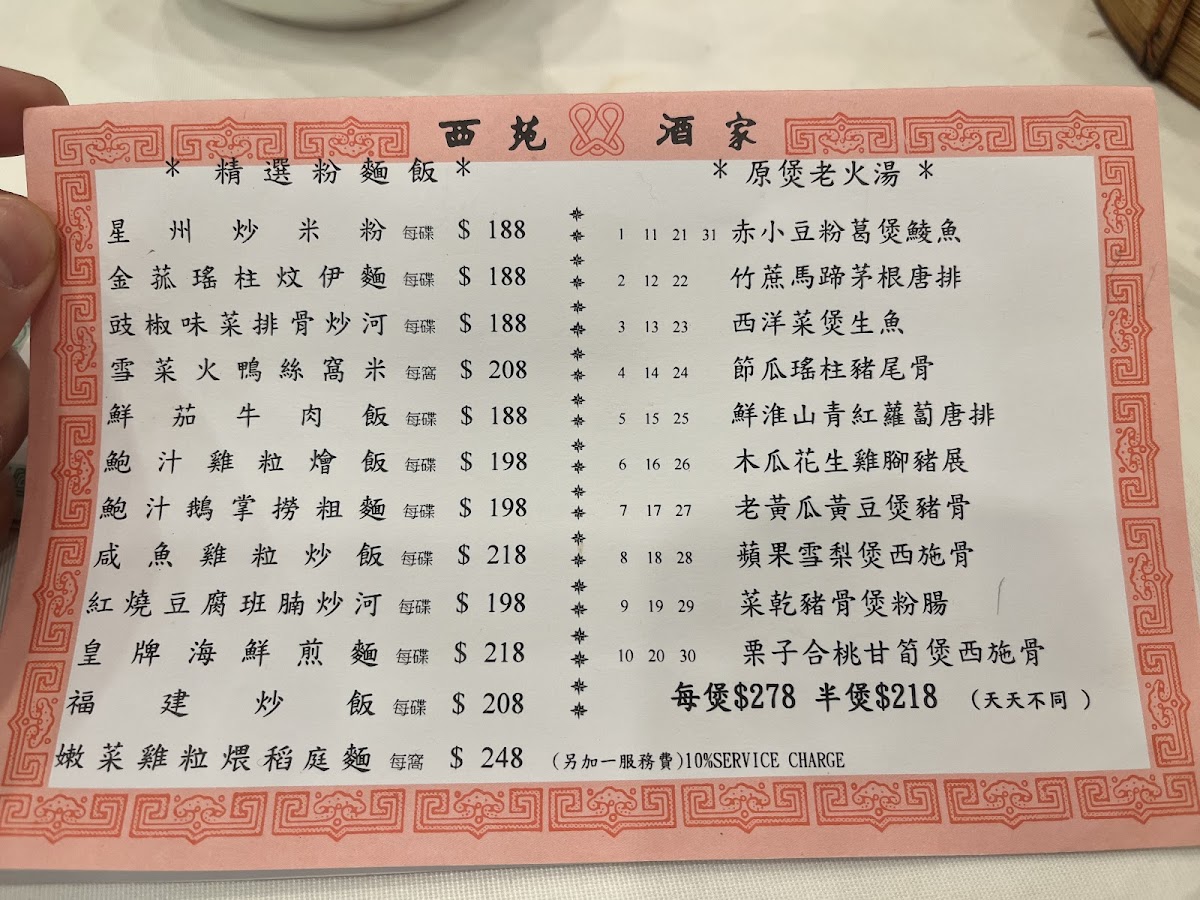 西苑酒家
* 精選粉麵飯 *
星州炒米粉 每碟 $ 188
金菰瑤柱炆伊麵 每碟 $ 188
豉椒味菜排骨炒河 每碟 $ 188
雪菜火鴨絲窩米 每窩 $ 208
鮮茄牛肉飯 每碟 $ 188
鮑汁雞粒燴飯 每碟 $ 198
鮑汁鵝掌撈粗麵 每碟 $ 198
咸魚雞粒炒飯 每碟 $ 218
紅燒豆腐班腩炒河 每碟 $ 198
皇牌海鮮煎麵 每碟 $ 218
福建炒飯 每碟 $ 208
嫩菜雞粒煨稻庭麵 每窩 $ 248
* 原煲老火湯 *
1 11 21 31 赤小豆粉葛煲鯪魚
2 12 22 竹蔗馬蹄茅根唐排
3 13 23 西洋菜煲生魚
4 14 24 節瓜瑤柱豬尾骨
5 15 25 鮮淮山青紅蘿蔔唐排
6 16 26 木瓜花生雞腳豬展
7 17 27 老黃瓜黃豆煲豬骨
8 18 28 蘋果雪梨煲西施骨
9 19 29 菜乾豬骨煲粉腸
10 20 30 栗子合桃甘筍煲西施骨
每煲$278 半煲$218 (天天不同 )
(另加一服務費)10%SERVICE CHARGE